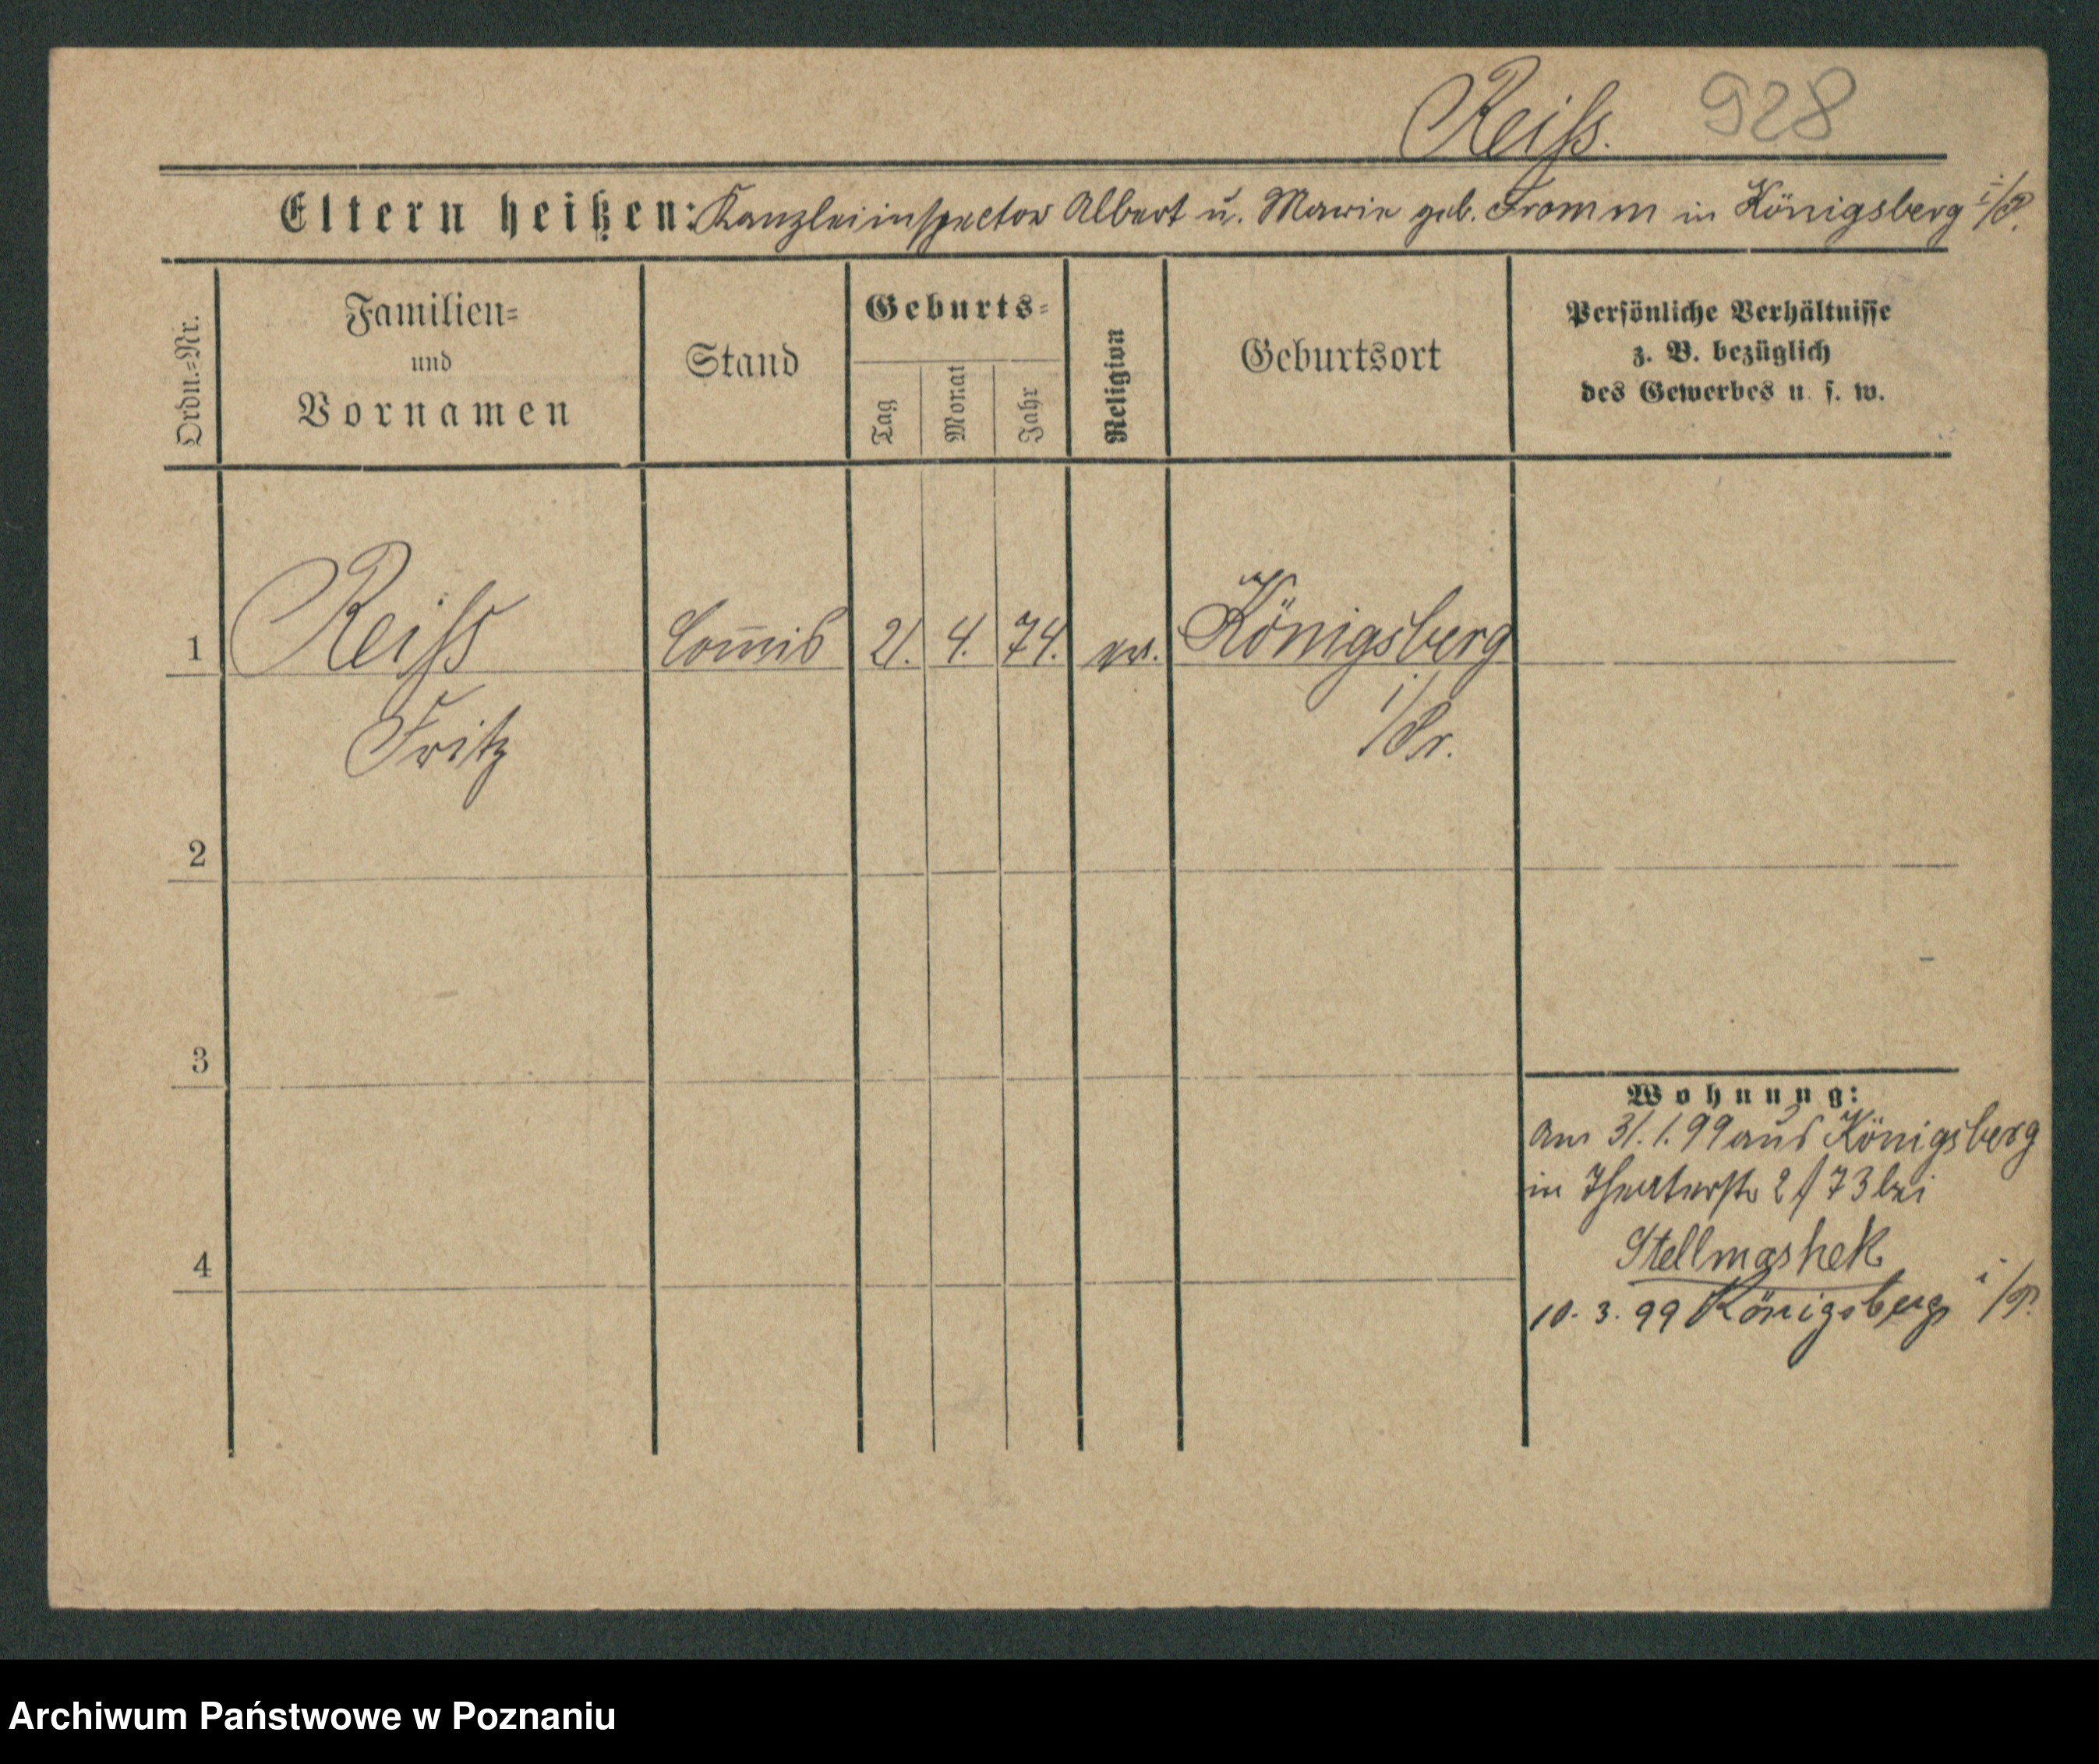 Reiss. 928
Eltern heißen: Kanzleiinspector Albert u. Marie geb. Fromm in Königsberg i/P.
Ordn.=Nr.
Familien=
und
Vornamen
Stand
Geburts=
Tag
Monat
Jahr
Religion
Geburtsort
Persönliche Verhältnisse
z. B. bezüglich
des Gewerbes u. s. w.
1 Reiss Com̅is 21. 4. 74. ev. Königsberg
Fritz i/Pr.
2
3
4
Wohnung:
am 31.1.99 aus Königsberg
in Theaterstr 2 / 73 bei
Stellmashek
10. 3. 99 Königsberg i/P.
Archiwum Państwowe w Poznaniu